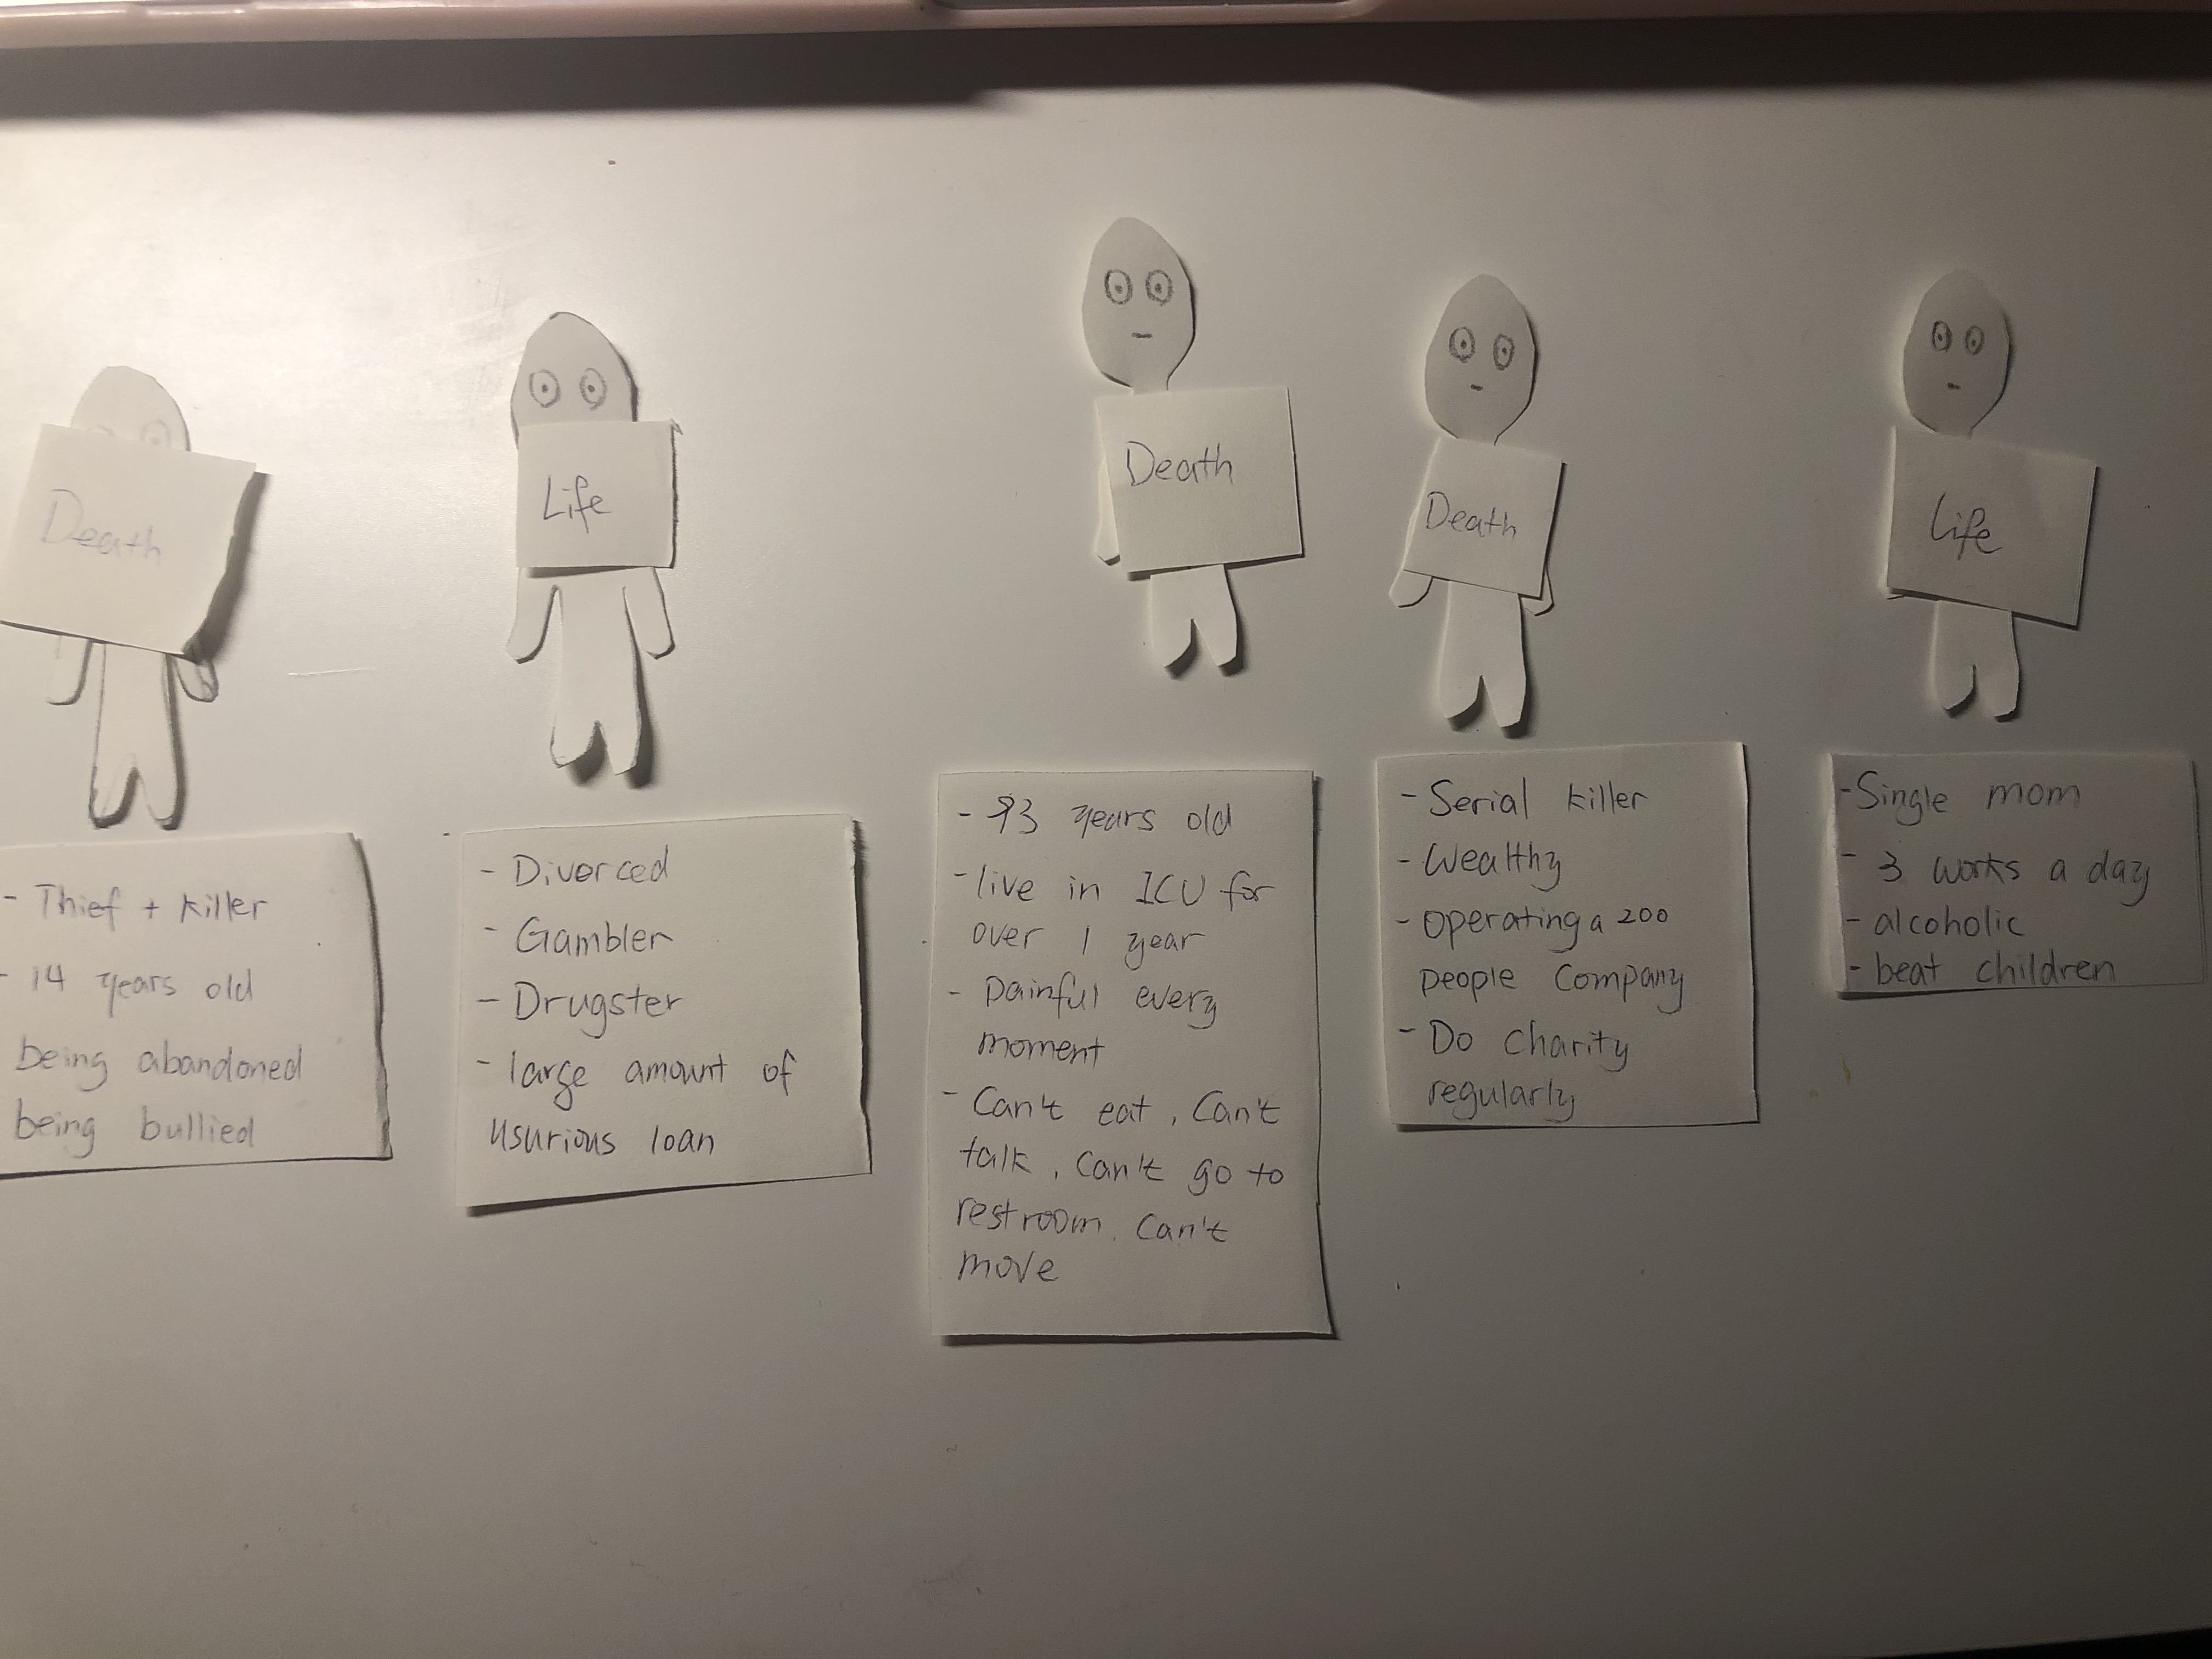 Death
- Thief + killer
- 14 years old
being abandoned
being bullied
Life
- Divorced
- Gambler
- Drugster
- large amount of
usurious loan
Death
- 93 years old
- live in ICU for
over 1 year
- painful every
moment
- Can't eat, Can't
talk, Can't go to
restroom, Can't
move
Death
- Serial killer
- Wealthy
- Operating a 200
people company
- Do charity
regularly
Life
- Single mom
- 3 works a day
- alcoholic
- beat children